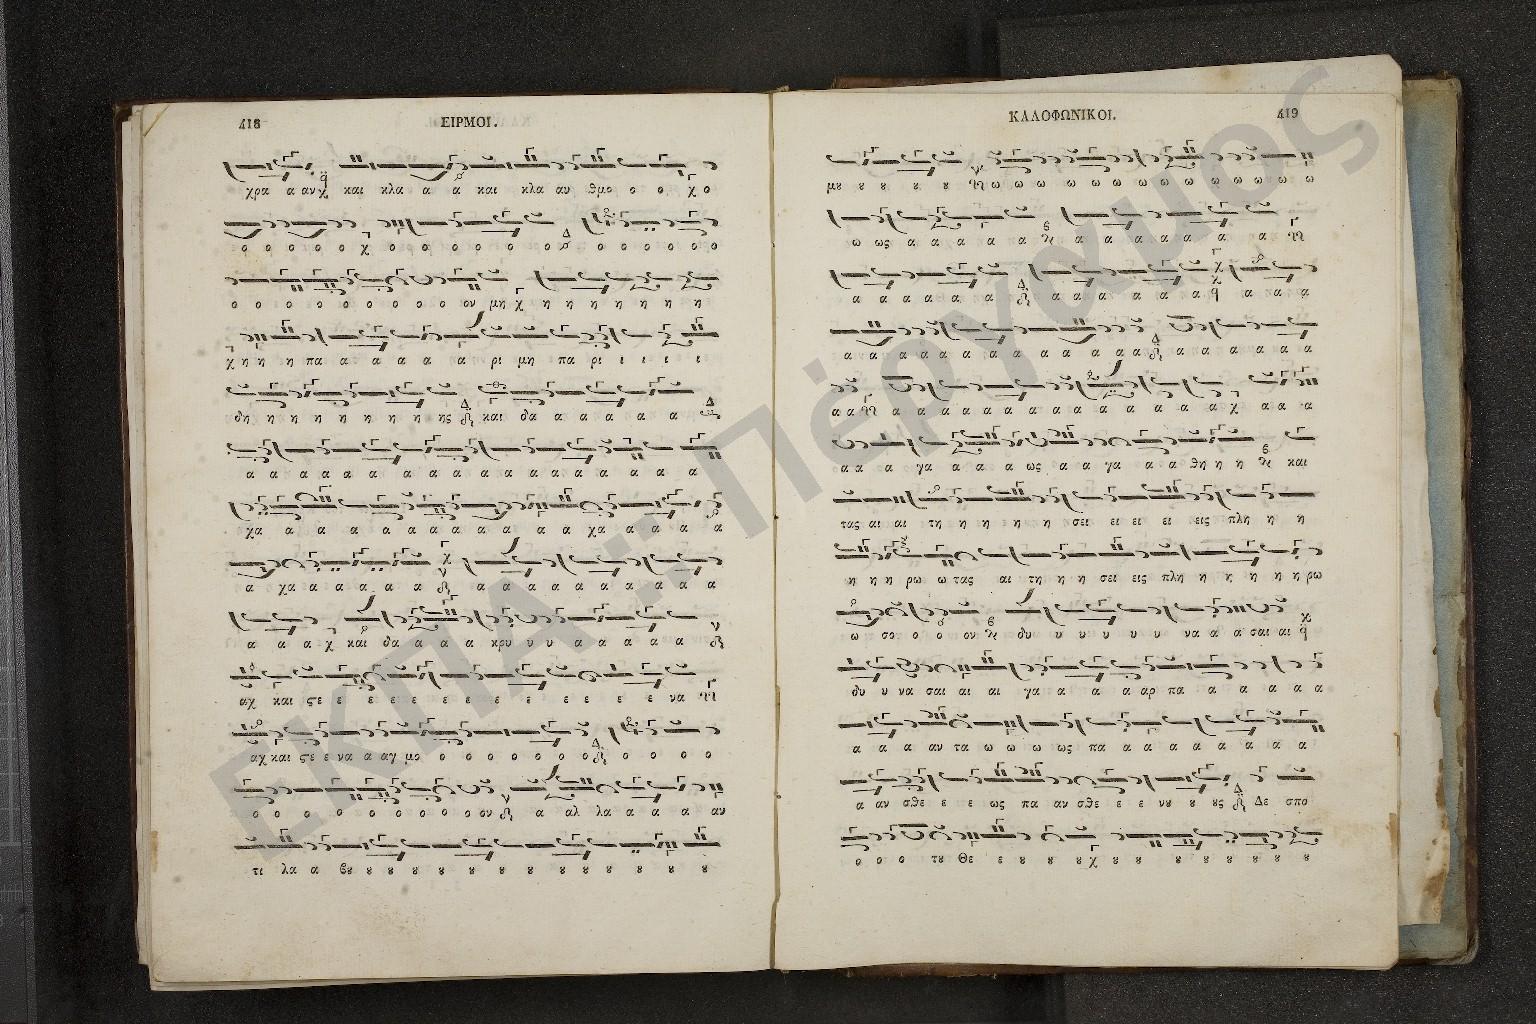 418
ΕΙΡΜΟΙ.
χρα α αν χ και κλα α α και κλα αυ θμο ο ο χ ο
ο ο ο ο ο χ ο ο ο ο ο ο ο ο ο ο ο ο ο ο
ο ο ο ο ο ο ο ο ο ο ο ον μη χ η η η η η η η
χ η η η πα α α α α α α ρι μη πα ρι ι ι ι ι
δη η η η η η η η η ης και δα α α α α α α
α α α α α α α α α α α α α α α α α α α
χα α α α α α α α α α α χα α α α α
α χα α α α α α α α α α α α α α α α
α α α χ και δα α α α α κρυ υ υ α α α α α
αχ και ϛε ε ε ε ε ε ε ε ε ε ε ε ε ε να
αχ και ϛε ε να α αγ μο ο ο ο ο ο ο ο ο ο ο ο ο
ο ο ο ο ο ο ο ο ο ο ο ον α αλ λα α α α αν
τι λα α βȣ ȣ ȣ ȣ ȣ ȣ ȣ ȣ ȣ ȣ ȣ ȣ ȣ ȣ ȣ ȣ
ΚΑΛΟΦΩΝΙΚΟΙ.
419
μȣ ȣ ȣ ȣ ȣ ω ω ω ω ω ω ω ω ω ω ω ω ω ω
ω ως α α α α α α α α α α α α α α
α α α α α α α α α α α α α α α α α
α α α α α α α α α α α α α α α α α α α α
α α α α α α α α α α α α α α α α χ α α α
α α α γα α α α ως α α γα α α θη η η και
τας αι αι τη η η η η η σει ει ει ει εις πλη η η
η η η ρω ω τας αι τη η η σει εις πλη η η η η η ρω
ω σον ο ο ον δυ υ υ υ υ υ να α α σαι αι
δυ υ να σαι αι αι γα α α α αρ πα α α α α α
α α α αν τα ω ω ω ως πα α α α α α α α α
α αν σθε ε ε ως πα αν σθε ε ε νȣ ȣ ȣς Δε σπο
ο ο ο τȣ Θε ε ȣ ȣ ȣ χ ȣ ȣ ȣ ȣ ȣ ȣ ȣ ȣ ȣ
ΕΚΠΑ :: Πέργαμος